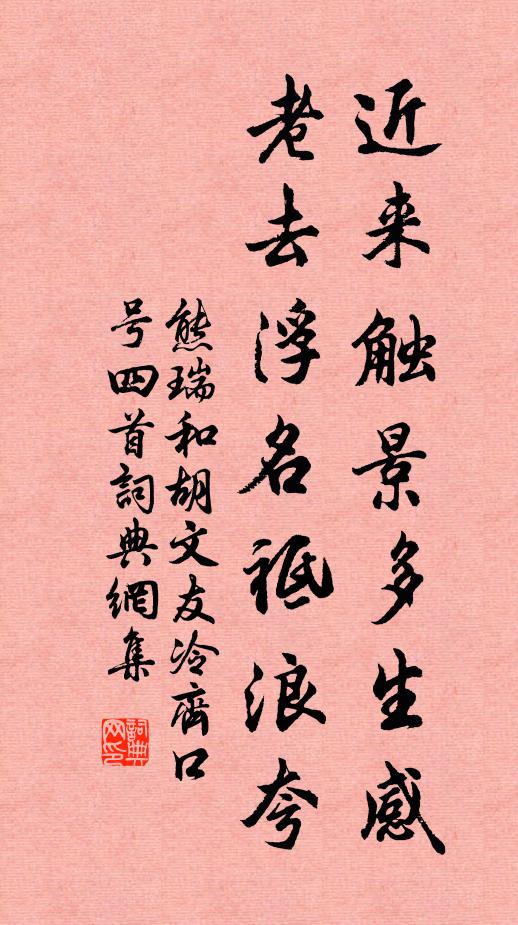 近来触景多生感
老去浮名祗浪夸
熊瑞和胡文友冷斋口
号四首詞典網集
詞典网印